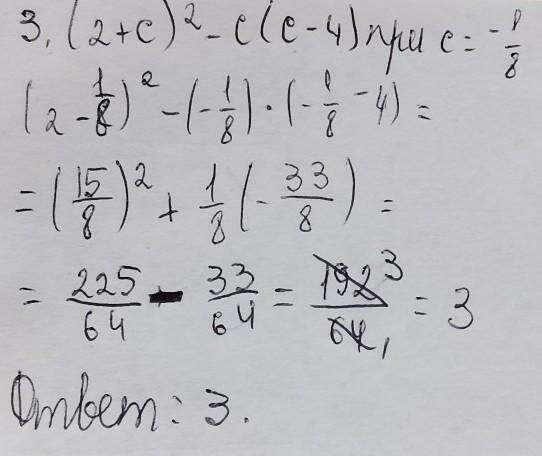 3. (2+c)² - c(c-4) при c = -1/8
(2 - 1/8)² - (-1/8) · (-1/8 - 4) =
= (15/8)² + 1/8 (-33/8) =
= 225/64 - 33/64 = 192/64 3/1 = 3
Ответ: 3.